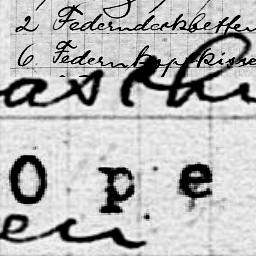 2 Federndeckbetten
6 Federnkopfkisse
asch
Ope
en